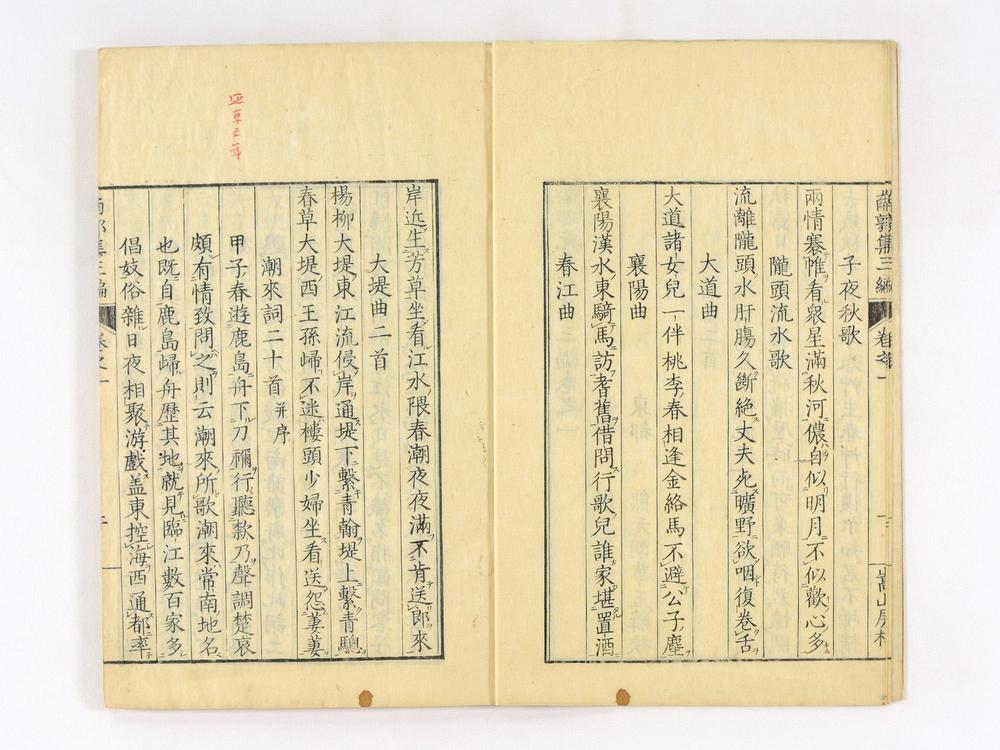 南郭集三編 卷之一
子夜秋歌
兩情褰帷看衆星滿秋河儂自似明月不似歡心多
隴頭流水歌
流離隴頭水肝膓久斷絶丈夫死曠野欲咽復卷舌
大道曲
大道諸女兒一伴桃李春相逢金絡馬不避公子塵
襄陽曲
襄陽漢水東騎馬訪耆舊借問行歌兒誰家堪置酒
春江曲
岸近生芳草坐看江水隈春潮夜夜滿不肯送郎來
大堤曲二首
楊柳大堤東江流侵岸通堤下繫青翰堤上繫青驄
春草大堤西王孫歸不迷樓頭少婦坐看送怨萋萋
潮來詞二十首并序
甲子春遊鹿島舟下刀禰行聽欸乃聲調楚哀
頗有情致問之則云潮來所歌潮來常南地名
也既自鹿島歸舟歷其地就見臨江數百家多
倡妓俗雜日夜相聚游戲盖東控海西通都率